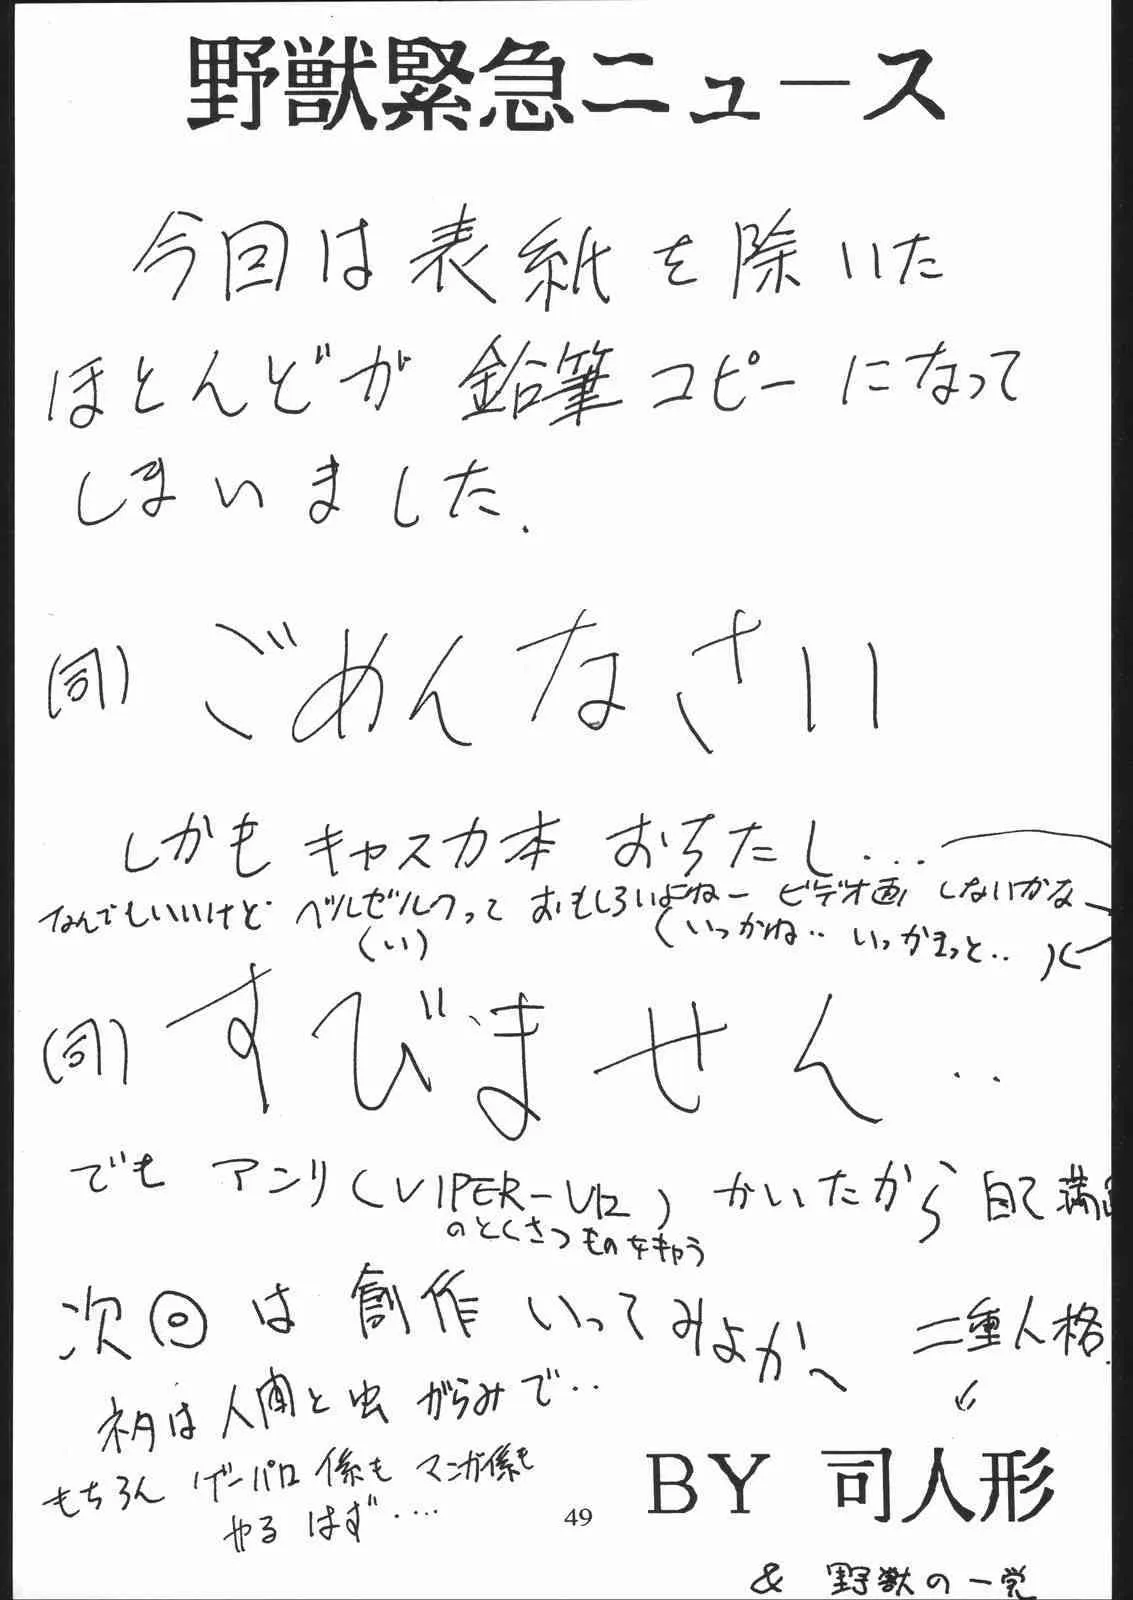 野獣緊急ニュース
今回は表紙を除いた
ほとんどが鉛筆コピーになって
しまいました.
(司) ごめんなさい
しかもキャスカ本 おちたし...
なんでもいいけど ベルセルクって おもしろいよねー ビデオ画 しないかな
(い) (いっかね.. いっかまっと.. )
(司) すびません..
でも アンリ (VIPER-V12) かいたから 自己満
のとくさつものをキャラ
次回は創作いってみよか〜 二重人格.
ネタは人間と虫がらみで..
もちろん ゲーパロ係も マンガ係も
やるはず....
BY 司人形
49
& 野獣の一党